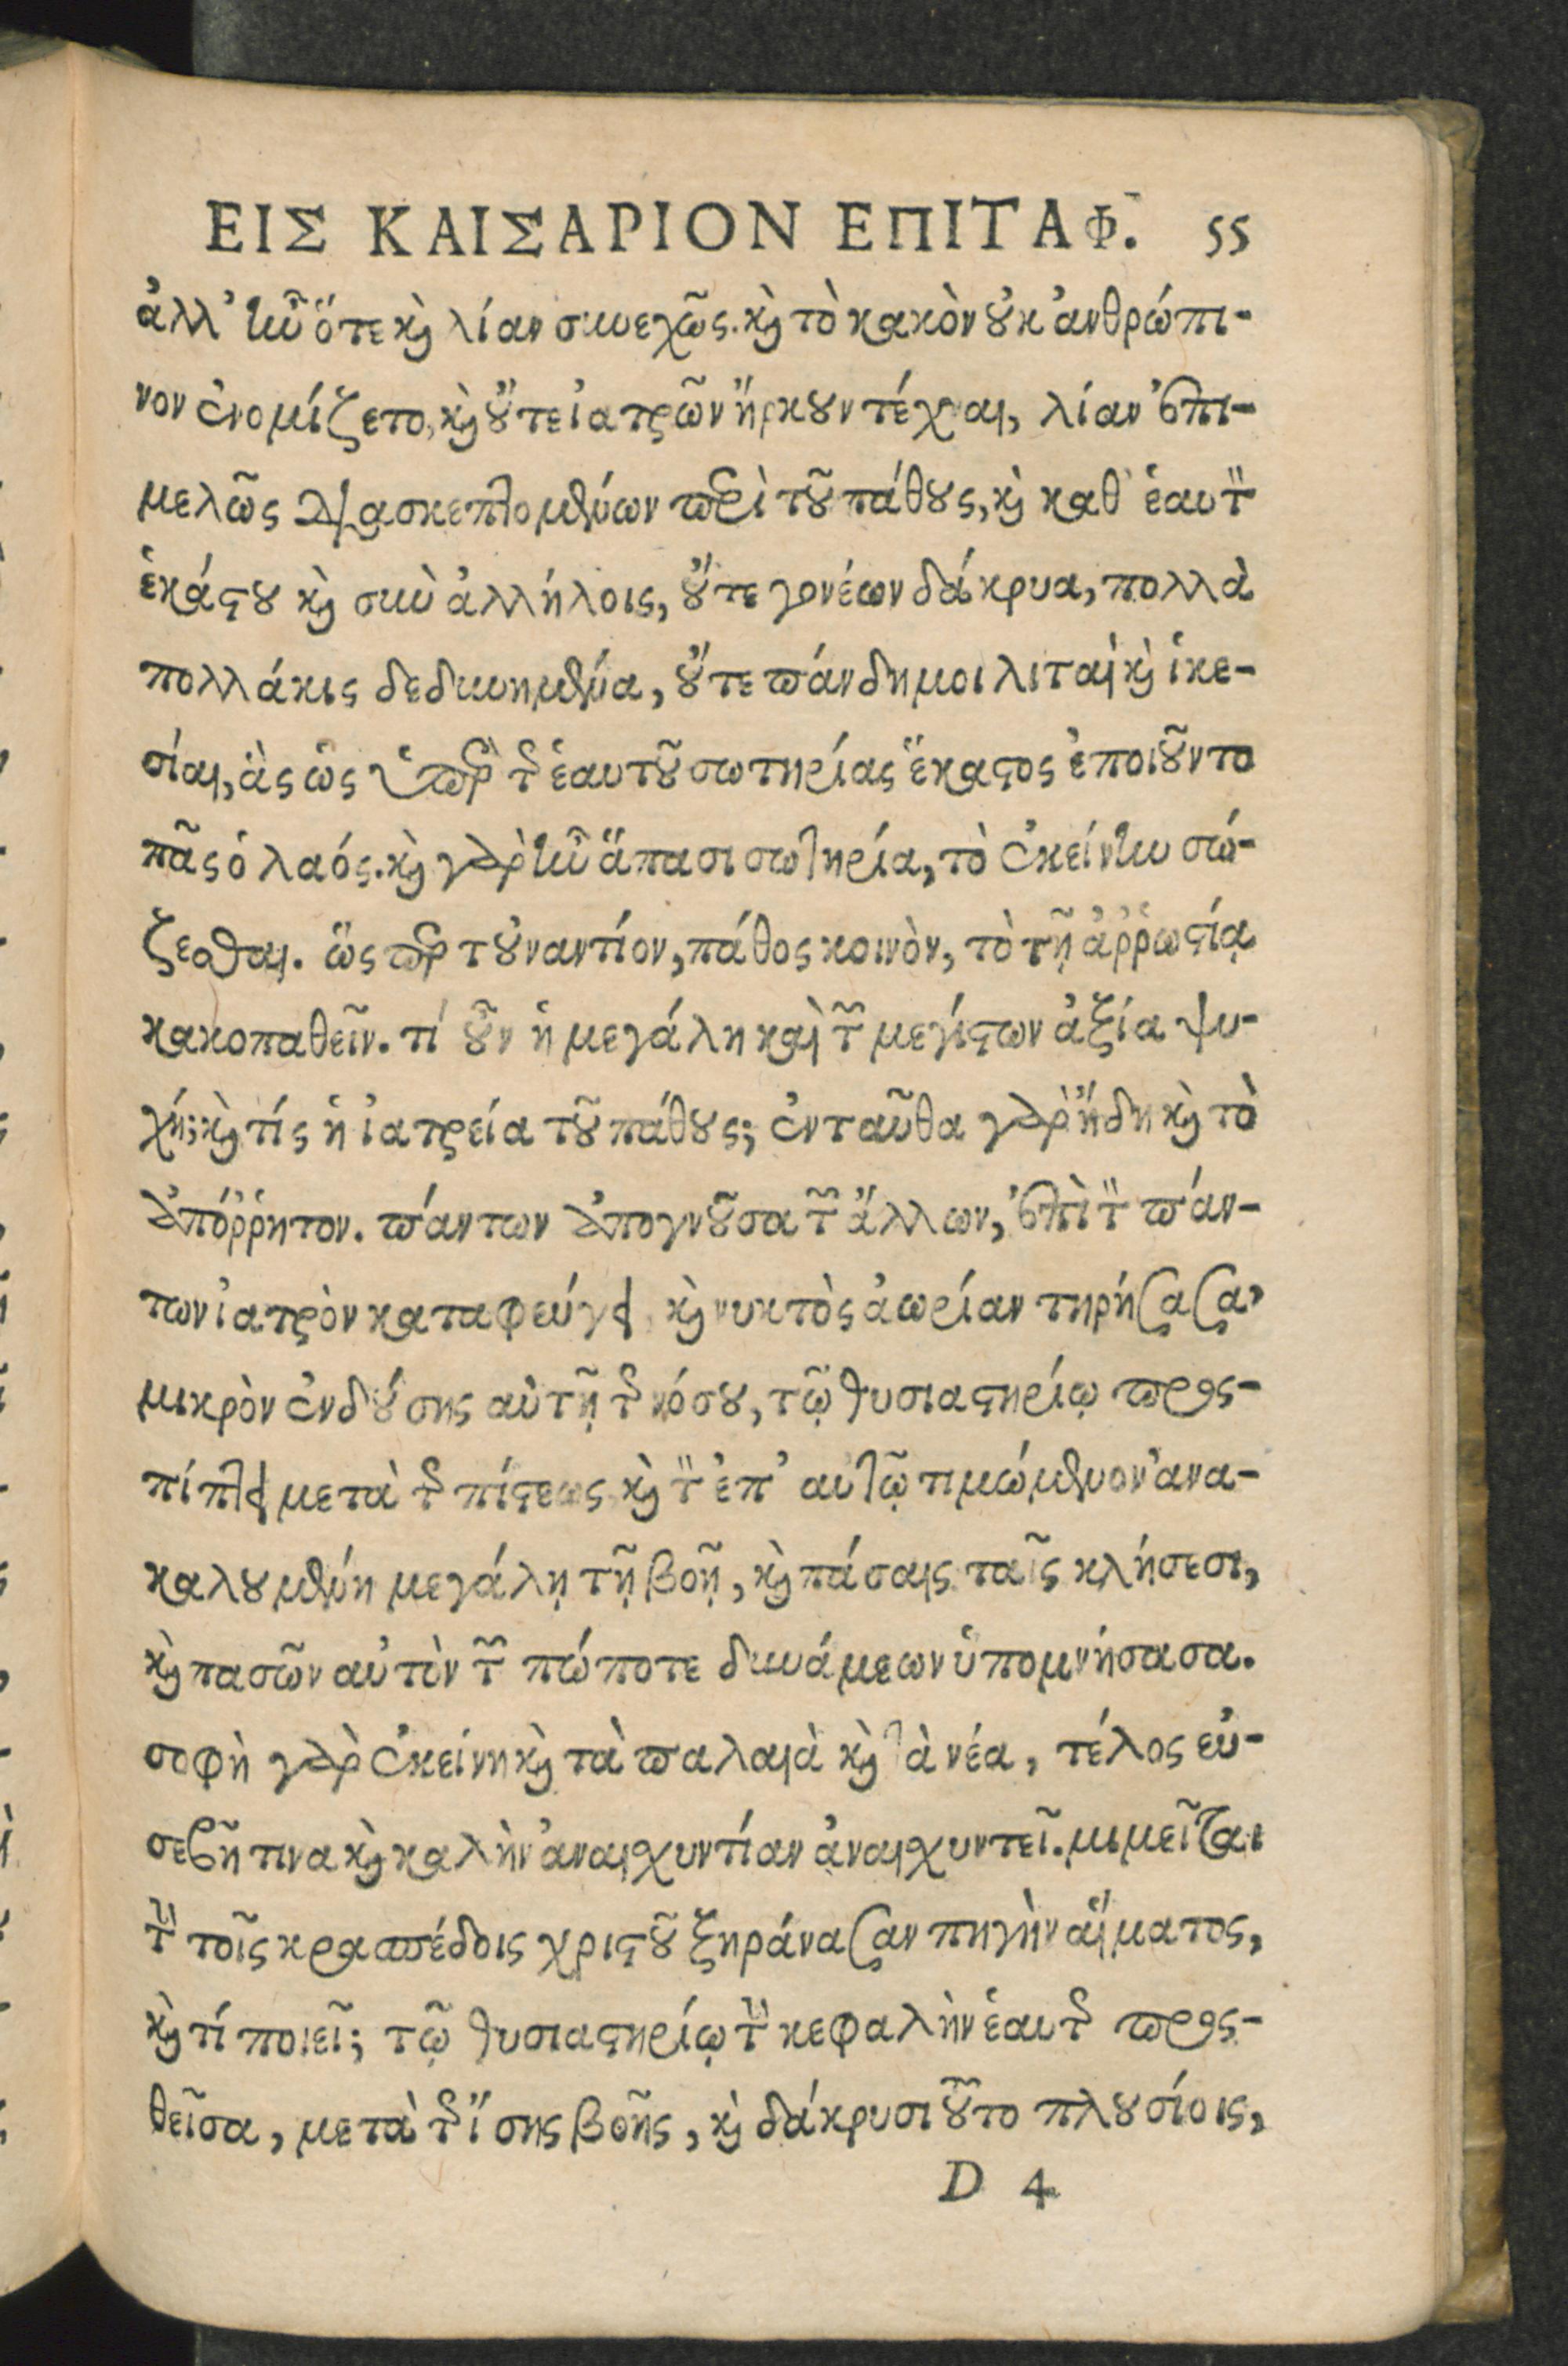 ΕΙΣ ΚΑΙΣΑΡΙΟΝ ΕΠΙΤΑΦ. 55
ἀλλ' ἦν ὅτε καὶ λίαν συνεχῶς. καὶ τὸ κακὸν οὐκ ἀνθρώπι-
νον ἐνομίζετο, καὶ οὔτε ἰατρῶν ἤρκουν τέχναι, λίαν ἐπι-
μελῶς διασκεπτομένων περὶ τοῦ πάθους, καὶ καθ' ἑαυτὸν
ἑκάστου καὶ σὺν ἀλλήλοις, οὔτε γονέων δάκρυα, πολλὰ
πολλάκις δεδυνημένα, οὔτε πάνδημοι λιταὶ καὶ ἱκε-
σίαι, ἃς ὡς ὑπὲρ τῆς ἑαυτοῦ σωτηρίας ἕκαστος ἐποιοῦντο
πᾶς ὁ λαός. καὶ γὰρ ἦν ἅπασι σωτηρία, τὸ ἐκείνην σώ-
ζεσθαι. ὥσπερ τοὐναντίον, πάθος κοινὸν, τὸ τῇ ἀῤῥωστίᾳ
κακοπαθεῖν. τί οὖν ἡ μεγάλη καὶ τῶν μεγίστων ἀξία ψυ-
χή; καὶ τίς ἡ ἰατρεία τοῦ πάθους; ἐνταῦθα γὰρ ἤδη καὶ τὸ
ἀπόῤῥητον. πάντων ἀπογνοῦσα τῶν ἄλλων, ἐπὶ τὸν πάν-
των ἰατρὸν καταφεύγει καὶ νυκτὸς ἀωρίαν τηρήσασα,
μικρὸν ἐνδούσης αὐτῇ τῆς νόσου, τῷ θυσιαστηρίῳ προς-
πίπτει μετὰ τῆς πίστεως καὶ τὸν ἐπ' αὐτῷ τιμώμενον ἀνα-
καλουμένη μεγάλῃ τῇ βοῇ, καὶ πάσαις ταῖς κλήσεσι,
καὶ πασῶν αὐτὸν τῶν πώποτε δυνάμεων ὑπομνήσασα.
σοφὴ γὰρ ἐκείνη καὶ τὰ παλαιὰ καὶ τὰ νέα, τέλος εὐ-
σεβῆ τινα καὶ καλὴν ἀναισχυντίαν ἀναισχυντεῖ. μιμεῖται
τὴν τοῖς κρασπέδοις χριστοῦ ξηράνασαν πηγὴν αἵματος,
καὶ τί ποιεῖ; τῷ θυσιαστηρίῳ τὴν κεφαλὴν ἑαυτῆς προς-
θεῖσα, μετὰ τῆς ἴσης βοῆς, καὶ δάκρυσι τοῦτο πλουσίοις,
D 4